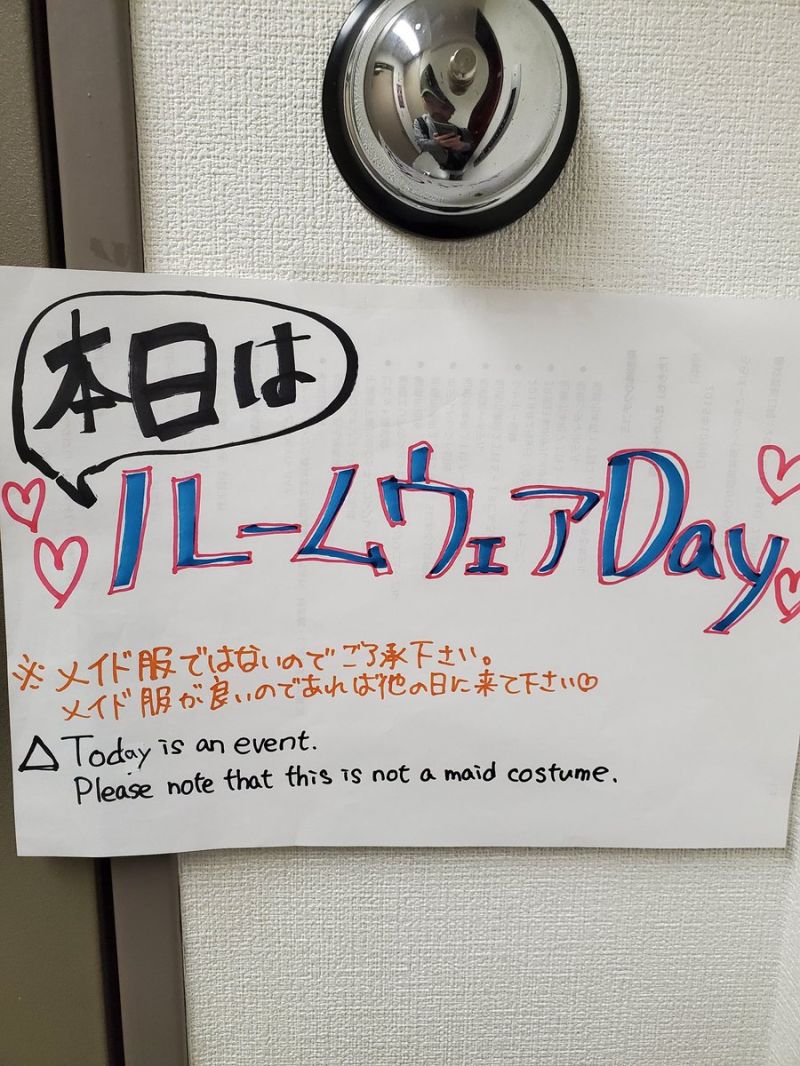 本日は
ルームウェアDay
※メイド服ではないのでご了承下さい。
メイド服が良いのであれば他の日に来て下さい♡
△Today is an event.
Please note that this is not a maid costume.